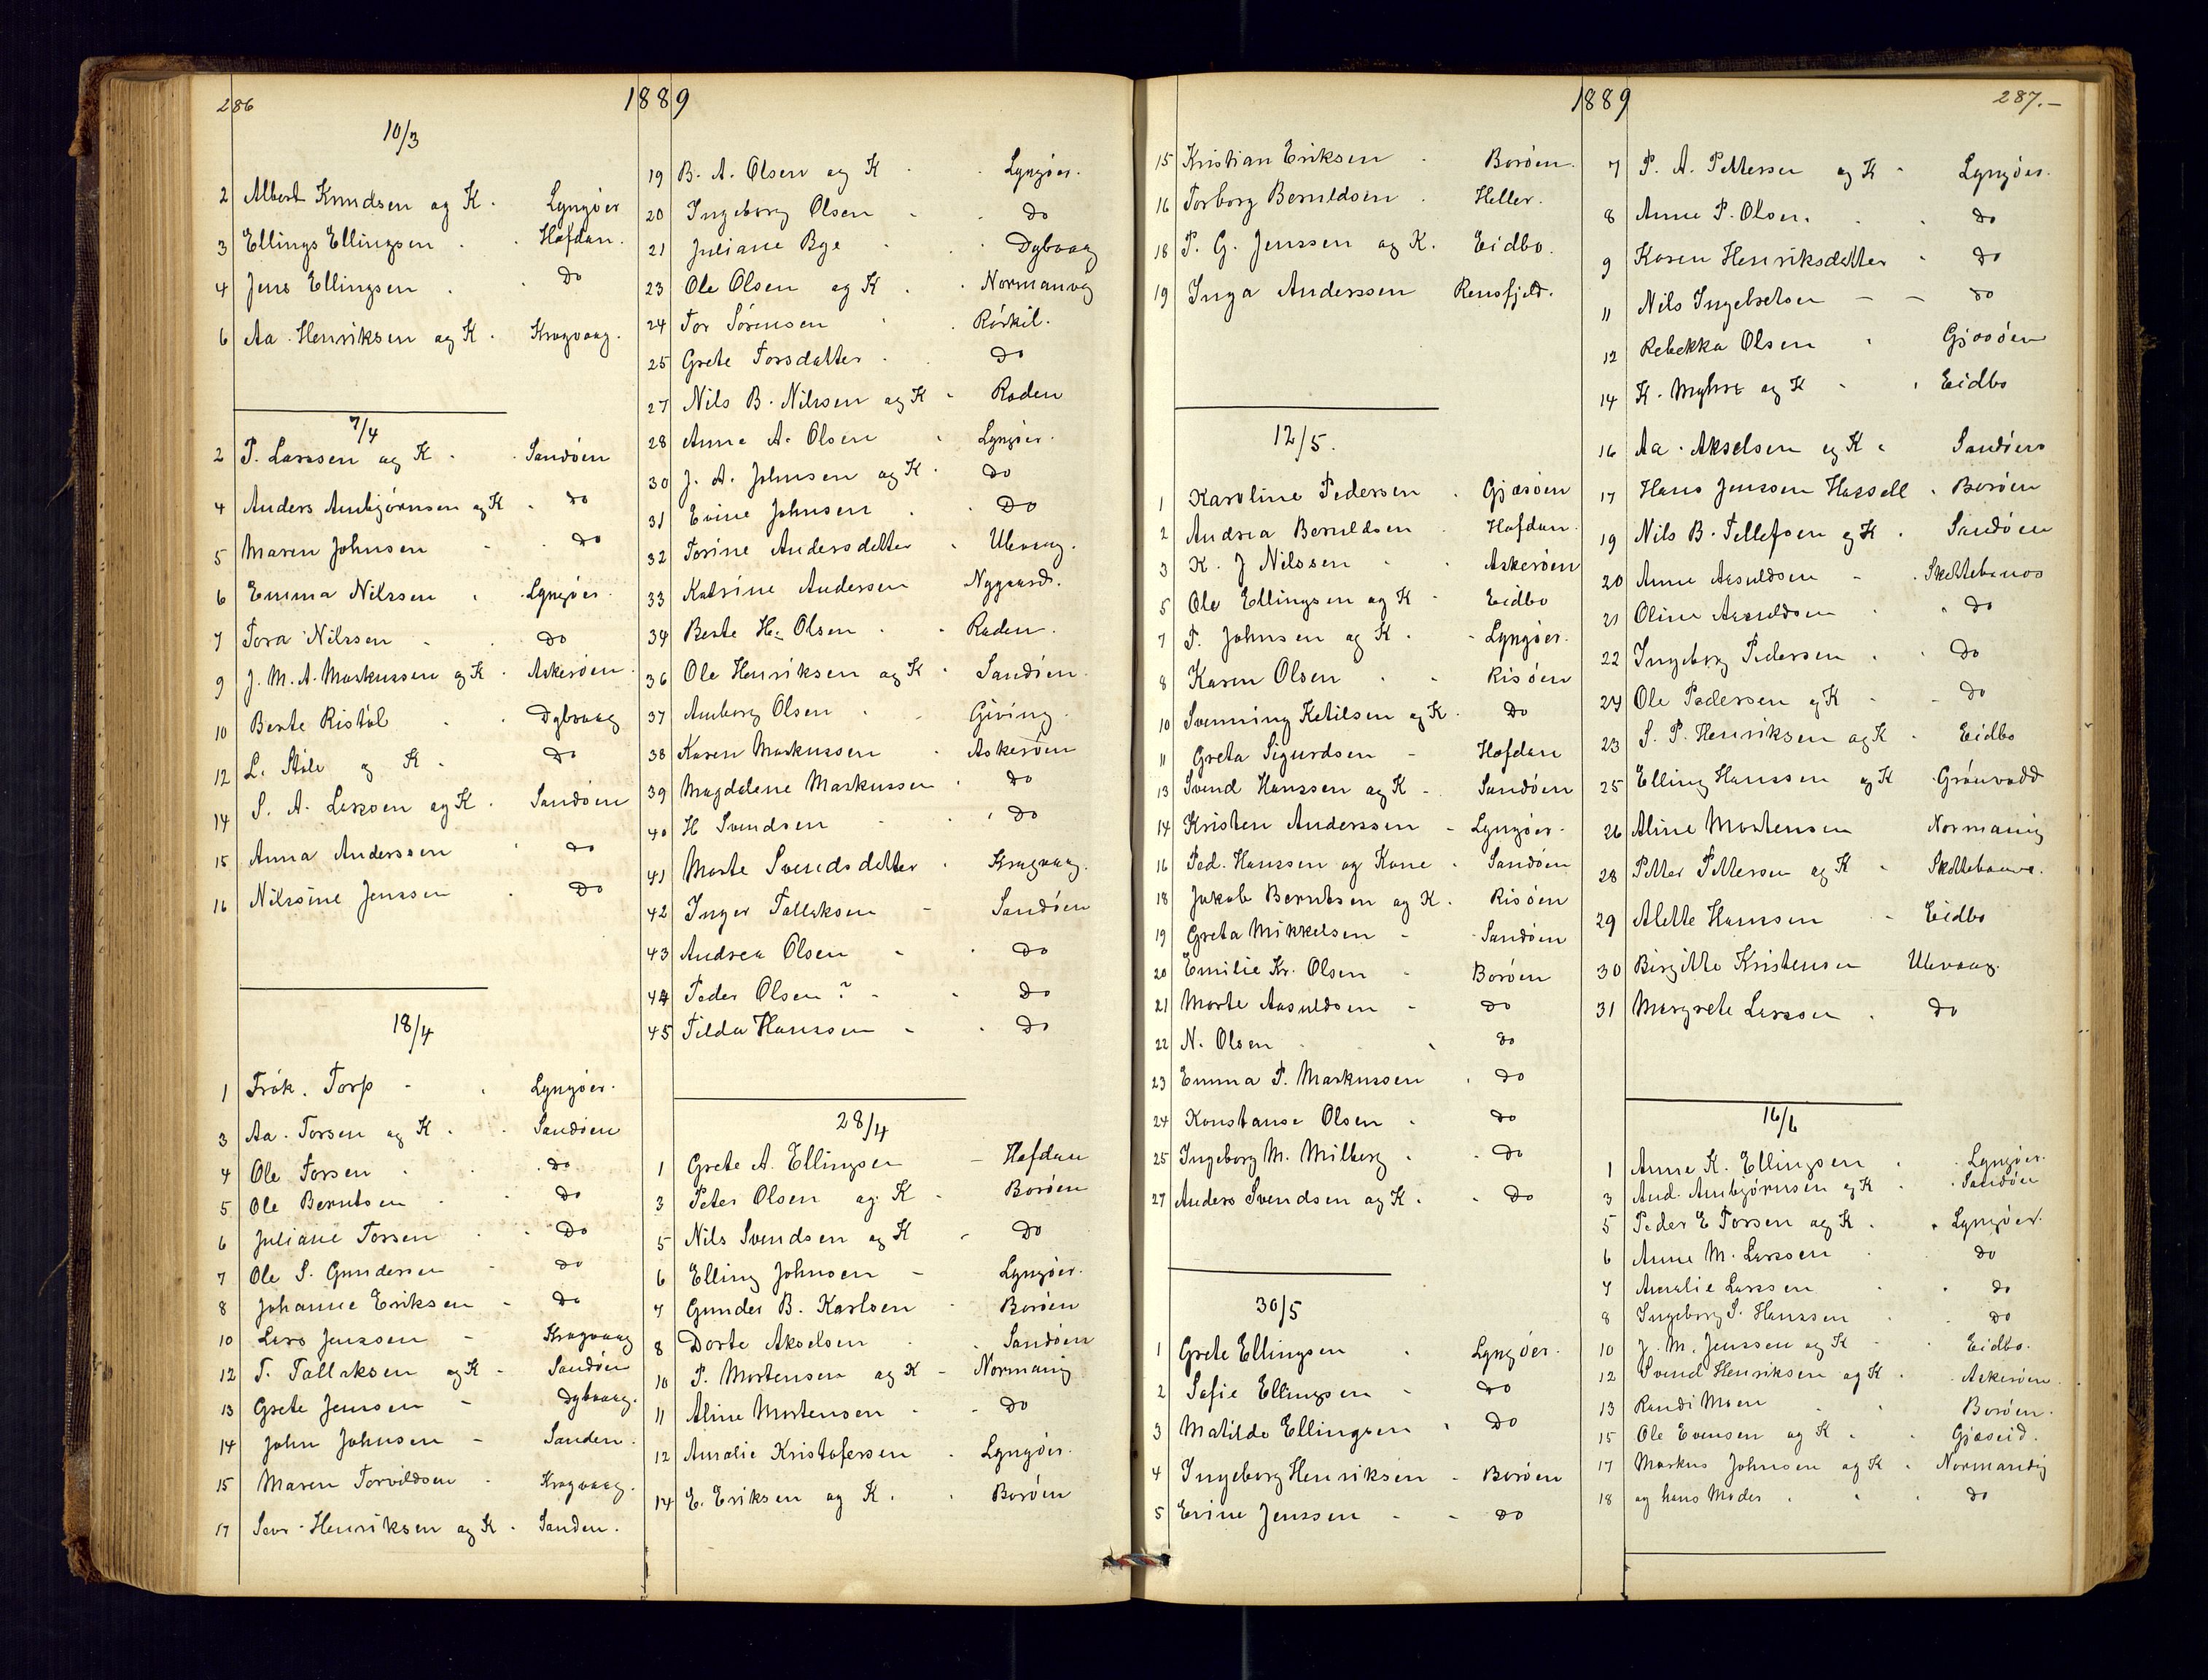 286
1889
10/3
2 Albert Knudsen og K. Lyngöer
3 Ellings Ellingsen . . Hafdan.
4 Jens Ellingsen . . Do
6 Aa. Henriksen og K. Kragvaag.
7/4
2 P. Larssen og K. . Sandöen
4 Anders Anbjörnsen og K . do
5 Maren Johnsen - . do
6 Emma Nilssen . Lyngöer
7 Tora Nilssen - . do
9 J. M. A. Markussen og K . Askeröen.
10 Berte Ristöl . . Dybvaag
12 L. Stöle og K. Do
14 S. A. Larssen og K. Sandöen
15 Anna Anderssen . do
16 Nilssine Jenssen . Do
18/4
1 Frök. Torp - . Lyngöer.
3 Aa. Torsen og K. . Sandöen
4 Ole Torsen . . do
5 Ole Berntsen . . do
6 Juliane Torsen . . Do
7 Ole S. Gundersen - do
8 Johanne Eriksen - do
10 Lars Jenssen - Kragvaag
12 T. Tallaksen og K - Sandöen
13 Grete Jensen - Dybvaag.
14 John Johnsen - Sanden.
15 Maren Torvildsen . Kragvaag.
17 Sevr. Henriksen og K. Sanden.
19 B. A. Olsen og K . . Lyngöer.
20 Ingeborg Olsen . . Do
21 Juliane Bge . . Dybvaag
23 Ole Olsen og K . . Normanvg
24 Tor Sörensen . . Rörkil.
25 Grete Torsdatter . . Do
27 Nils B. Nilssen og K - Roden
28 Anne A. Olsen . Lyngöer.
30 J. A. Johnsen og K. Do
31 Evine Johnsen . . Do
32 Torine Andersdatter . Ulevaag.
33 Katrine Andersen Nygaard.
34 Berte H. Olsen . . Roden.
36 Ole Henriksen og K . Sandöen.
37 Anborg Olsen . . Giving.
38 Karen Markussen . Askeröen
39 Magdalene Markussen . Do
40 H Svendsen - . Do
41 Marte Svendsdatter . Kragvaag.
42 Inger Tallaksen - Sandöen
43 Andrea Olsen - . Do
44 Peder Olsen ? - - Do
45 Tilda Hanssen - . Do
28/4
1 Grete A. Ellingsen - Hafdan
3 Peter Olsen og K - Boröen
5 Nils Svendsen og K - Do
6 Elling Johnsen - Lyngöer.
7 Gunder B. Karlsen - Boröen
8 Dorte Akselsen . . Sandöen
10 P. Mortensen og K - Normanvg
11 Aline Mortensen - - Do
12 Amalie Kristofersen . Lyngöer.
14 E. Eriksen og K. . Boröen
1889
287.-
15 Kristian Eriksen . Boröen.
16 Torborg Beruldsen . Heller.
18 P. G. Jenssen og K. Eidbo.
19 Inga Anderssen Rensfjeld.
12/5.
1 Karoline Pedersen . Gjæsöen
2 Andrea Beruldsen . Hafdan.
3 K. J Nilssen . . Askeröen
5 Ole Ellingsen og K - Eidbo
7 T. Johnsen og K. - Lyngöer.
8 Karen Olsen . - Risöen
10 Svenning Ketilsen og K. Do
11 Greta Sigurdsen - Hafdan
13 Svend Hanssen og K - Sandöen
14 Kristen Anderssen - Lyngöer.
16 Ped. Hanssen og Kone . Sandöen
18 Jakob Berntsen og K. Risöen
19 Greta Mikkelsen - . Sandöen
20 Emilie Kr. Olsen - Boröen
21 Marte Aasuldsen - do
22 N. Olsen . . do
23 Emma P. Markussen . do
24 Konstanse Olsen . do
25 Ingeborg M. Milberg . . do
27 Anders Svendsen og K. . do
30/5
1 Grete Ellingsen . Lyngöer.
2 Sofie Ellingsen - do
3 Matilde Ellingsen . Do
4 Ingeborg Henriksen - Boröen
5 Evine Jenssen - - do
7 P. A. Pettersen og K - Lyngöer.
8 Anne P. Olsen. . . do
9 Karen Henriksdatter . do
11 Nils Ingebretsen - - do
12 Rebekka Olsen . Gjæsöen
14 K. Myhre og K - . Eidbo
16 Aa. Akselsen og K . Sandöen
17 Hans Jenssen Hassell . Boröen
19 Nils B. Tellefsen og K . Sandöen
20 Anne Aasuldsen - . Skottebanos
21 Oline Aasuldsen . . do
22 Ingeborg Pedersen . . Do
24 Ole Pedersen og K - - do
23 S. P. Henriksen og K . Eidbo
25 Elling Hanssen og K . Grönvadd
26 Aline Mortensen Normanvg
28 Petter Pettersen og K - Skottebanos.
29 Alette Hanssen - Eidbo
30 Birgitte Kristensen Ulevaag.
31 Margrete Larssen . Do
16/6
1 Anne K. Ellingsen . . Lyngöer.
3 And. Anbjörnsen og K . . Sandöen
5 Peder E Torsen og K . . Lyngöer.
6 Anne M. Larssen . do
7 Amalie Larssen . . do
8 Ingeborg S. Hanssen . do
10 J. M. Jenssen og K - . Eidbo.
12 Svend Henriksen og K . . Askeröen.
13 Randi Moen . . Boröen.
15 Ole Evensen og K . . Gjæseid.
17 Markus Johnsen og K . Normanvig
18 og hans Moder . . . do